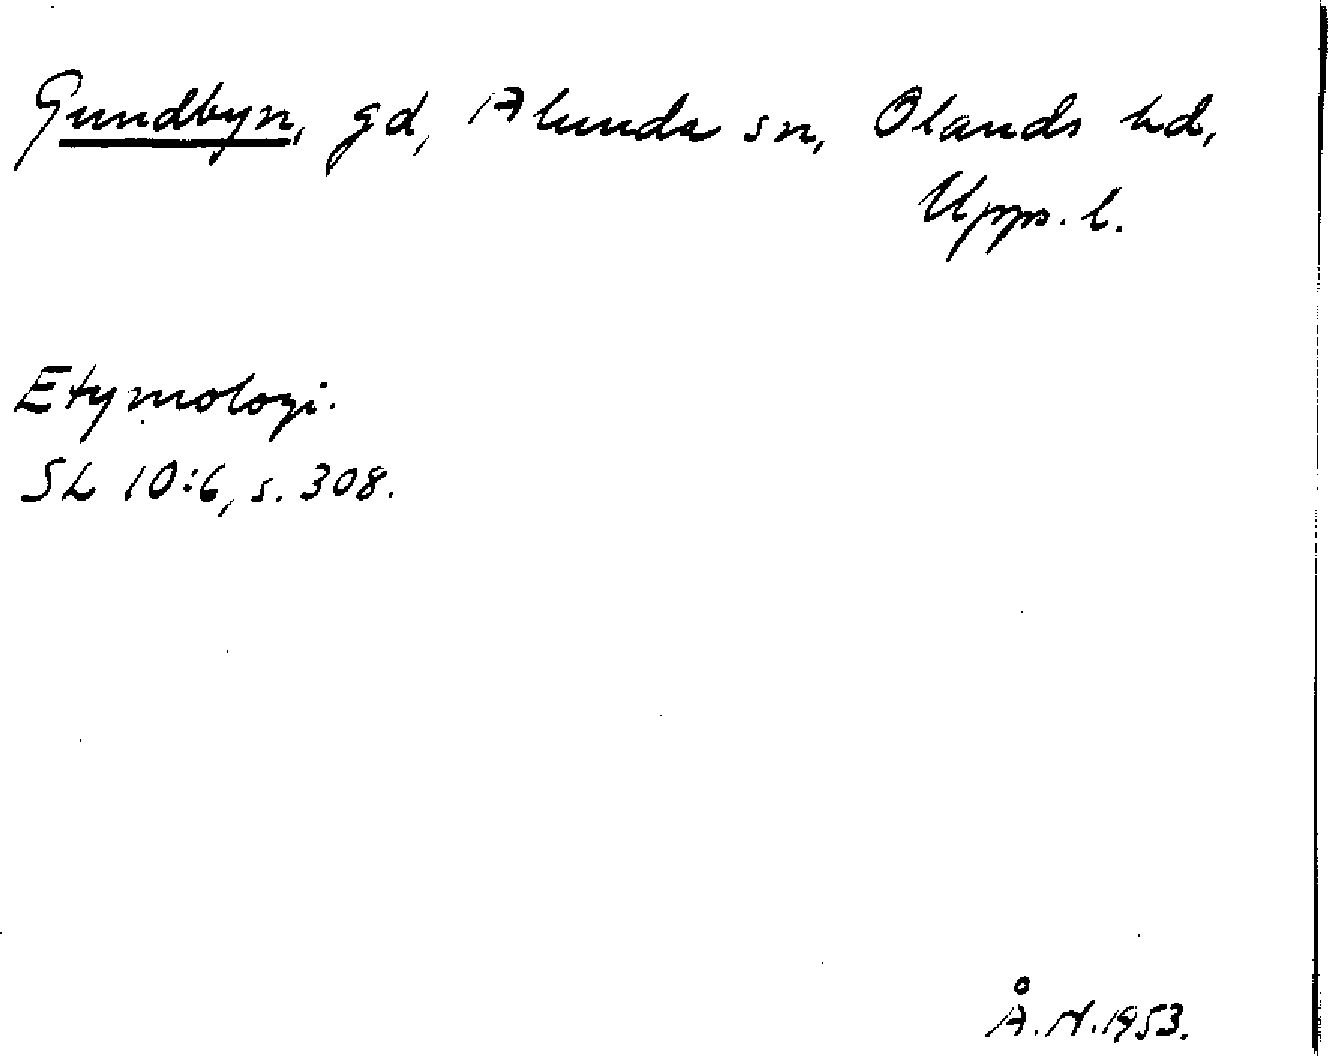 Gundbyn, gd, Alunda sn, Olands hd,
Upps. l.
Etymologi.
SL 10:6, s. 308.
Å.N. 1953.